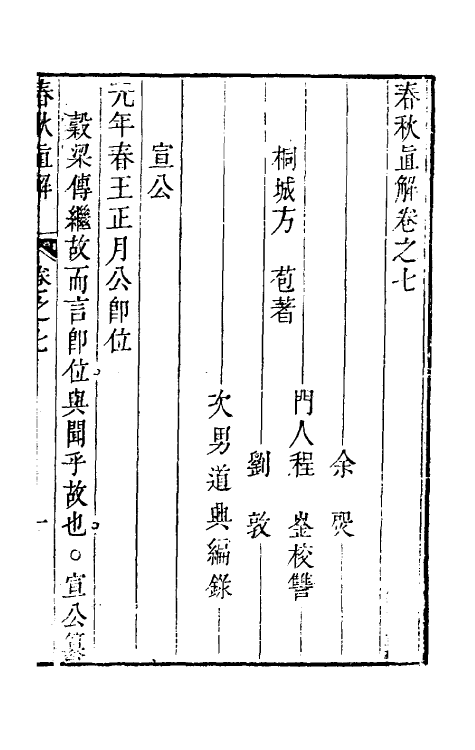 春秋直解卷之七
余煚
桐城方　苞著　門人程　崟校讐
劉敦
次男道興編錄
宣公
元年春王正月公卽位
穀梁傳繼故而言卽位與聞乎故也○宣公篡
春秋直解　卷之七　一